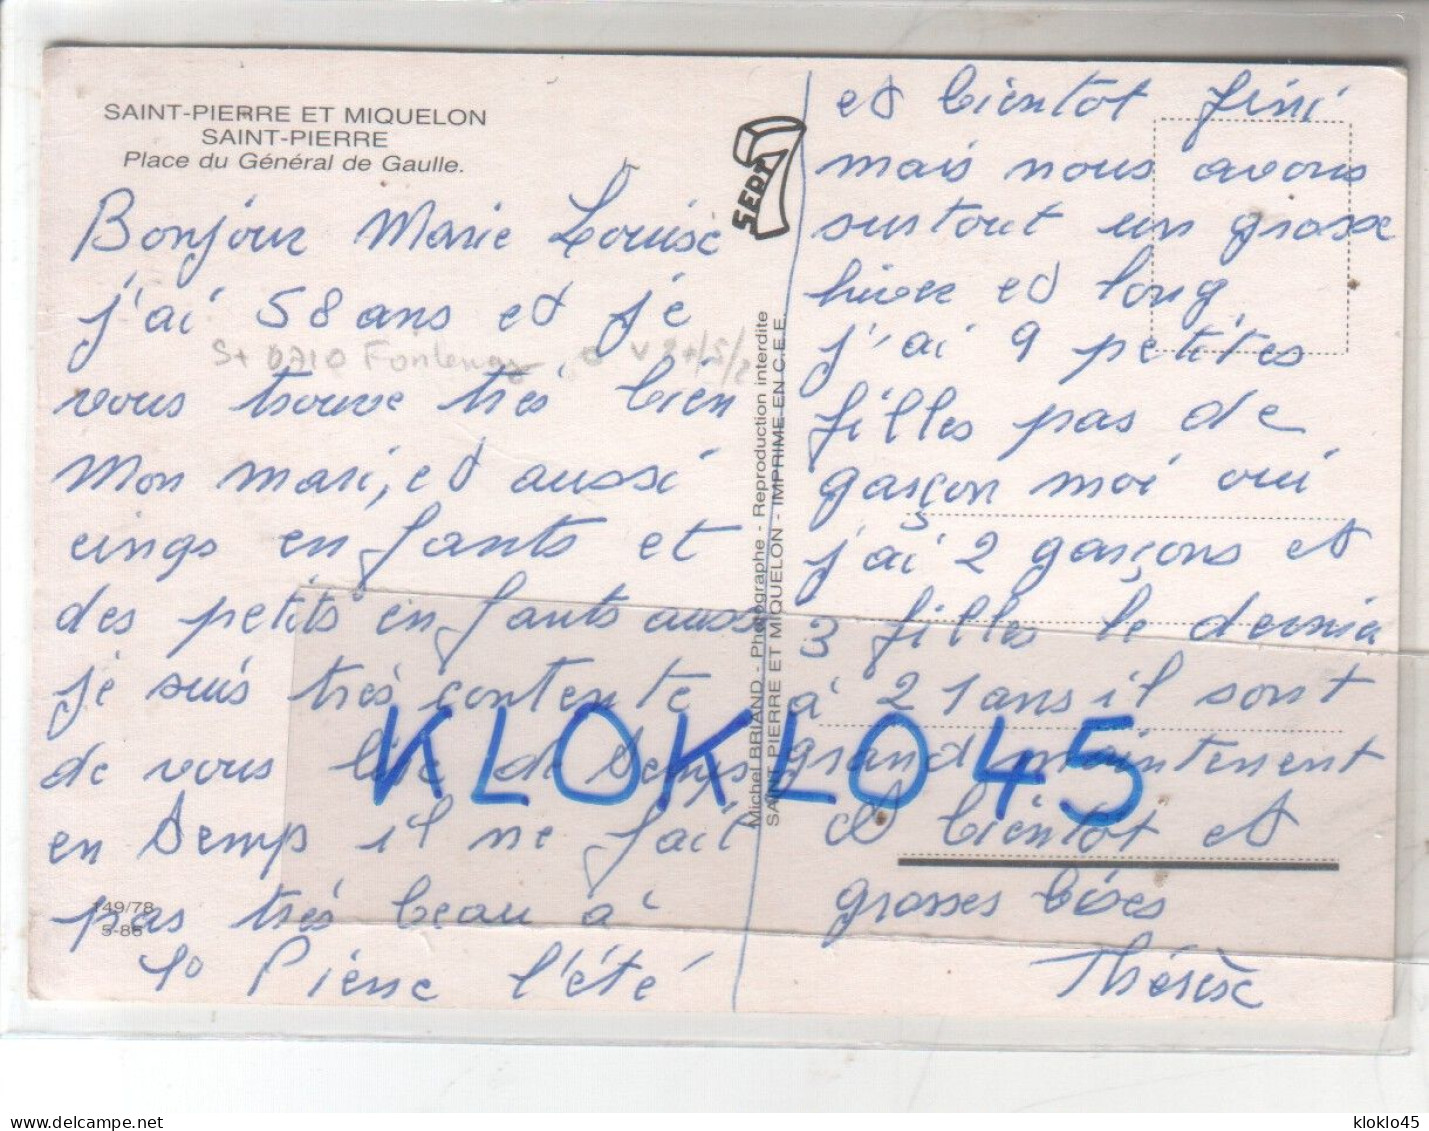 SAINT-PIERRE ET MIQUELON
SAINT-PIERRE
Place du Général de Gaulle.
Bonjour Marie Louise
j'ai 58 ans et je
vous trouve très bien
Mon mari, et aussi
cinqs en fants et
des petits en fants aussi
je suis très contente
de vous lire de temps
en temp il ne fait
pas très beau à
St Pierre l'été
149/78
5-86
SERT
Michel BRIAND - Photographe - Reproduction interdite
SAINT PIERRE ET MIQUELON - IMPRIME EN C.E.E.
et bientot fini
mais nous avons
surtout un grosse
hiver et long
j'ai 9 petites
filles pas de
garçon moi oui
j'ai 2 garçons et
3 filles le dernier
à 21 ans il sont
grand maintenent
à bientot et
grosses bises
Thérèse
KLOKLO45
kloklo45